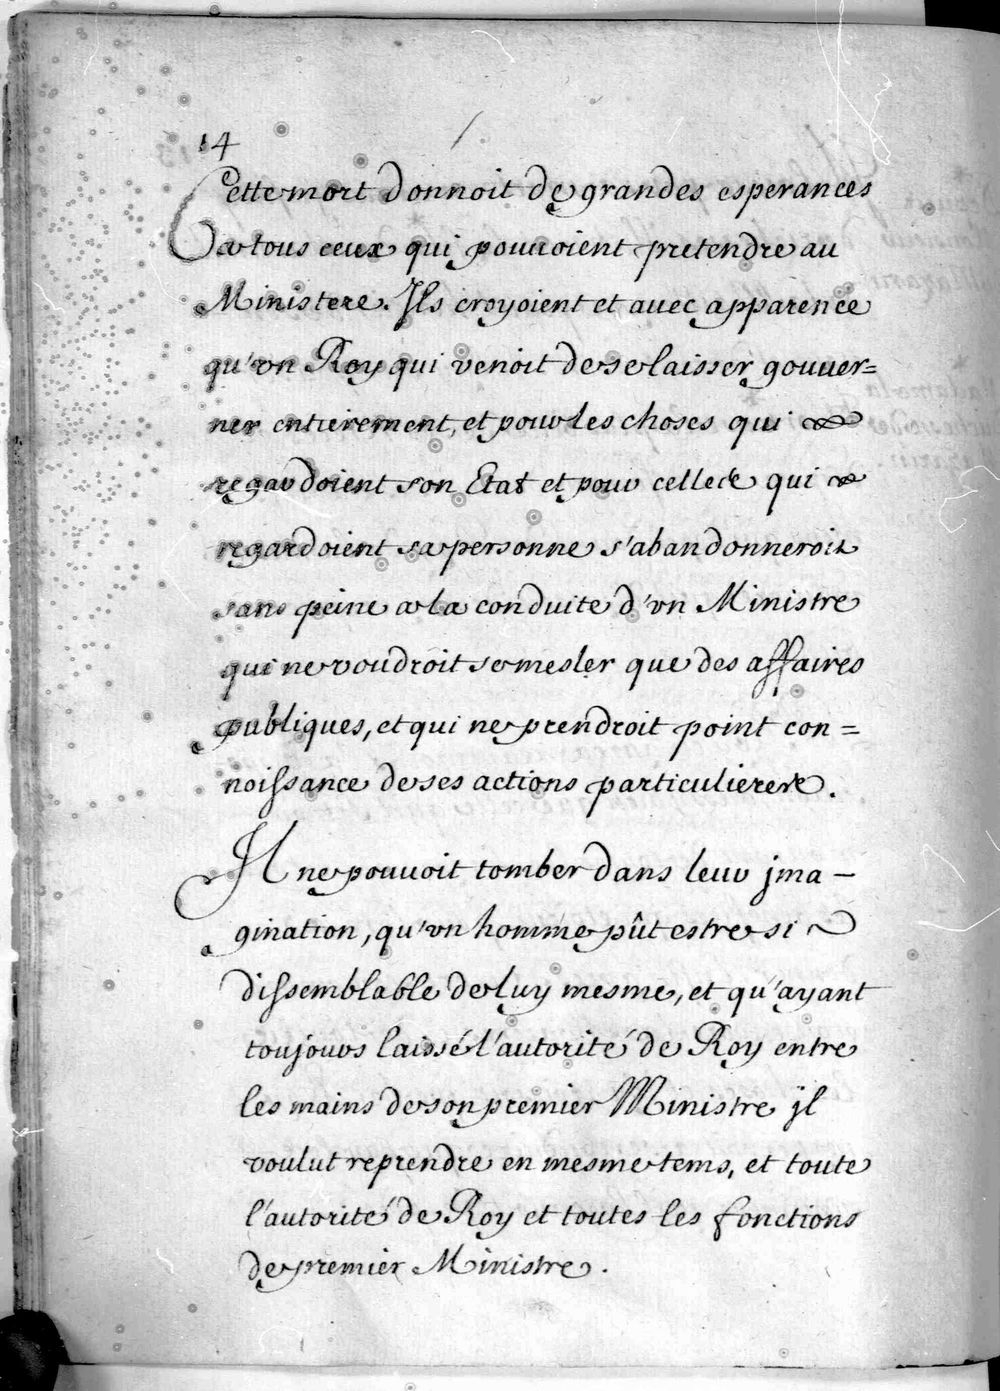 14
Cette mort donnoit de grandes esperances
a tous ceux qui pouuoient pretendre au
Ministere. Ils croyoient et auec apparence
qu'vn Roy qui venoit de se laisser gouuer=
ner entierement, et pour les choses qui
regardoient son Etat et pour celles qui
regardoient sa personne s'abandonneroit
sans peine a la conduite d'vn Ministre
qui ne voudroit se mesler que des affaires
publiques, et qui ne prendroit point con=
noissance de ses actions particulieres.
Il ne pouuoit tomber dans leur jma-
gination, qu'vn homme pût estre si
dissemblable de luy mesme, et qu'ayant
toujours laissé l'autorité de Roy entre
les mains de son premier Ministre jl
voulut reprendre en mesme tems, et toute
l'autorité de Roy et toutes les fonctions
de premier Ministre.